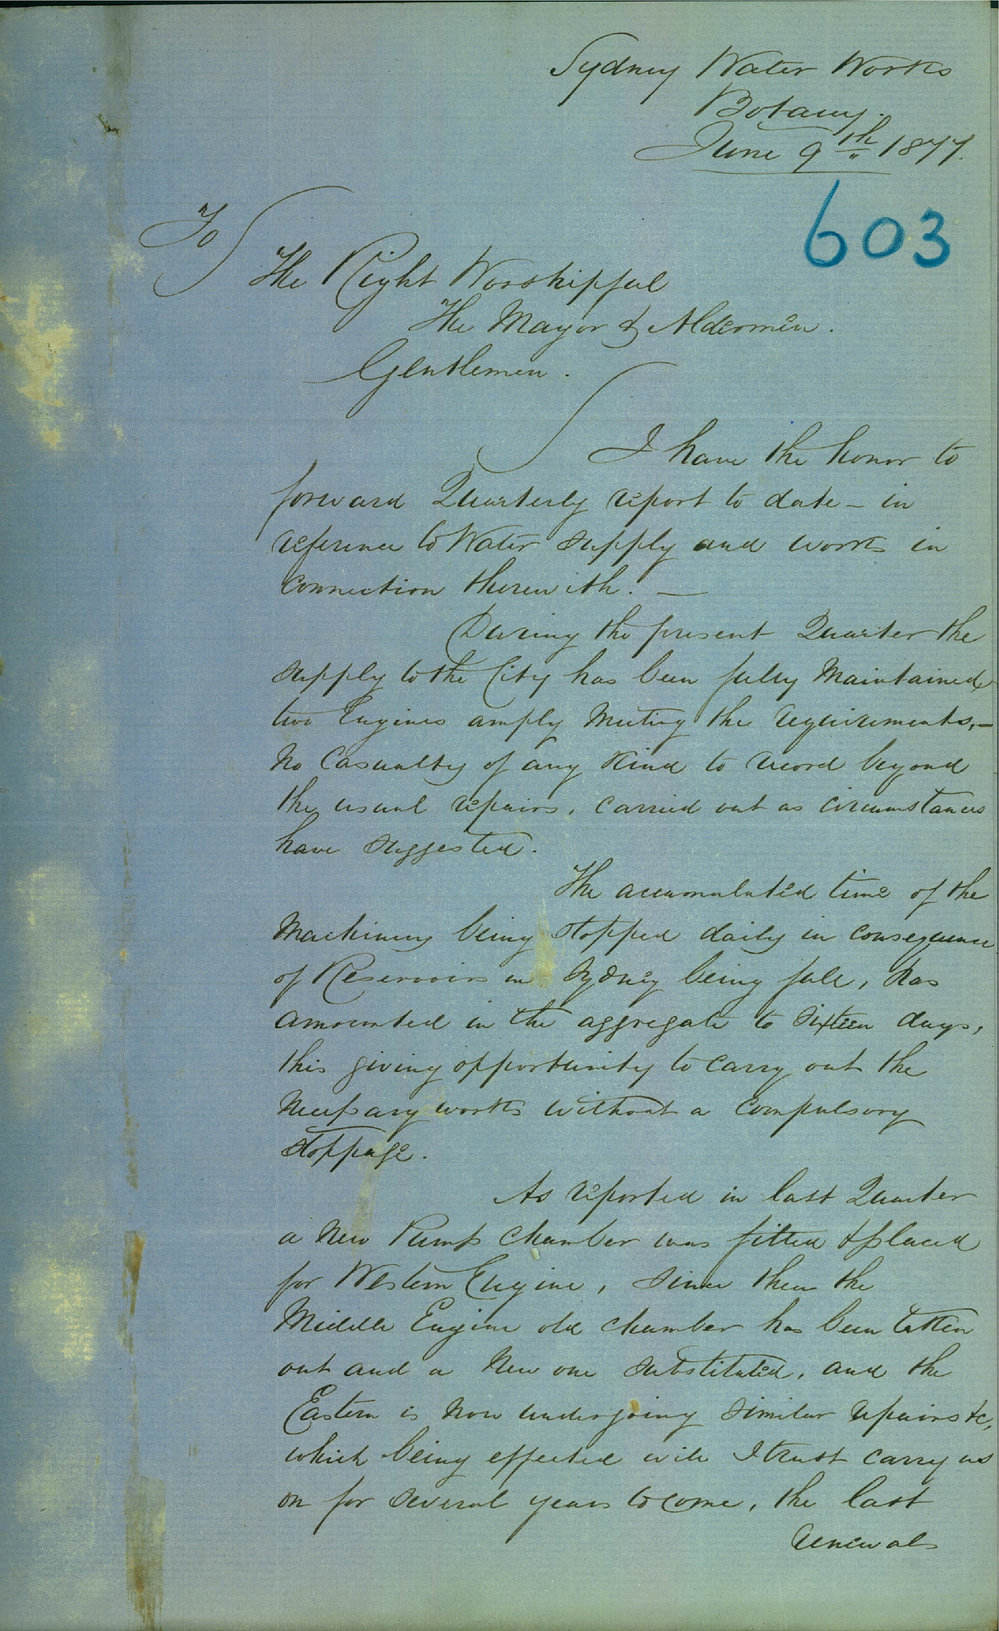 Sydney Water Works
Botany.
June 9th 1877.
603
To
The Right Worshipful
The Mayor & Aldermen.
Gentlemen.
I have the honor to
forward Quarterly report to date – in
reference to Water supply and works in
connection therewith. —
During the present Quarter the
supply to the City has been fully maintained
two Engines amply meeting the requirements, –
No Casualty of any kind to record beyond
the usual repairs, carried out as circumstances
have suggested.
The accumulated time of the
Machinery being stopped daily in consequence
of Reservoirs in Sydney being full, has
amounted in the aggregate to sixteen days,
this giving opportunity to carry out the
Necessary works without a compulsory
stoppage.
As reported in last Quarter
a New Pump Chamber was fitted & placed
for Western Engine, since then the
Middle Engine old chamber has been taken
out and a New one substituted, and the
Eastern is now undergoing similar repairs &c,
which being effected will I trust carry us
on for several years to come, the last
renewals